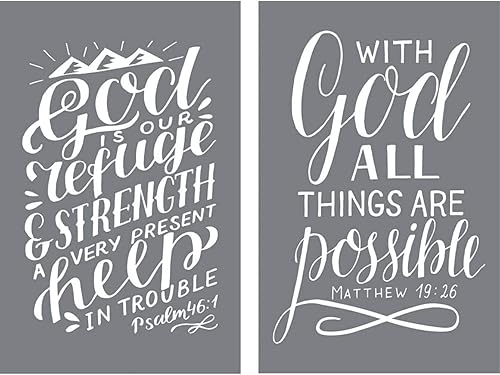 God
is our
refuge
& STRENGTH
A VERY PRESENT
help
IN TROUBLE
Psalm 46:1
WITH
God
ALL
THINGS ARE
possible
MATTHEW 19:26